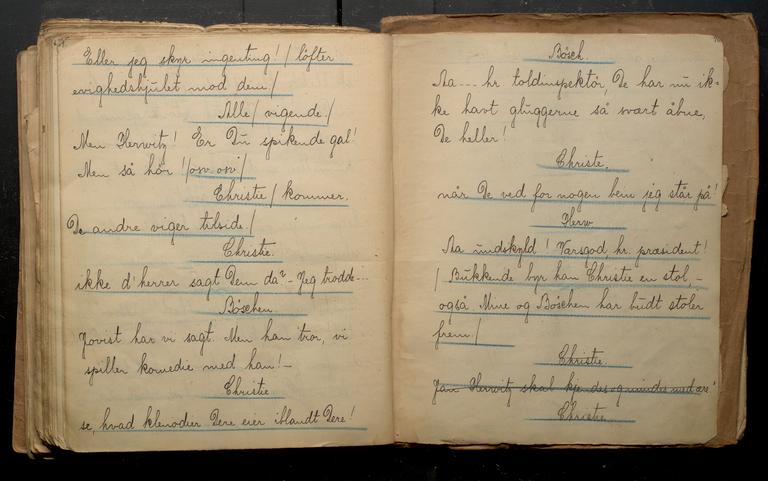 Eller jeg skyr ingenting! / løfter
evighedshjulet mod dem /
Alle / vigende. /
Men Herwitz! Er Du spikende gal!
Men så hør! / osv. osv. /
Christie / kommer.
De andre viger tilside. /
Christie.
ikke d'herrer sagt Dem da? - Jeg trodde...
Böschen
Jovist har vi sagt. Men han tror, vi
spiller komedie med han! -
Christie
se, hvad klenodier Dere eier iblandt Dere!
Bösch.
Aa --- hr. toldinspektör, De har nu ik-
ke havt gluggerne så svært åbne,
De heller!
Christie.
når De ved for nogen ben jeg står på!
Herw
Aa undskyld! Værsgod, hr. præsident!
/ Bukkende byr han Christie en stol, -
også Mine og Böschen har budt stoler
frem /
Christie.
Jan Herwitz skal kjendes og mindes med ære!
Christie.